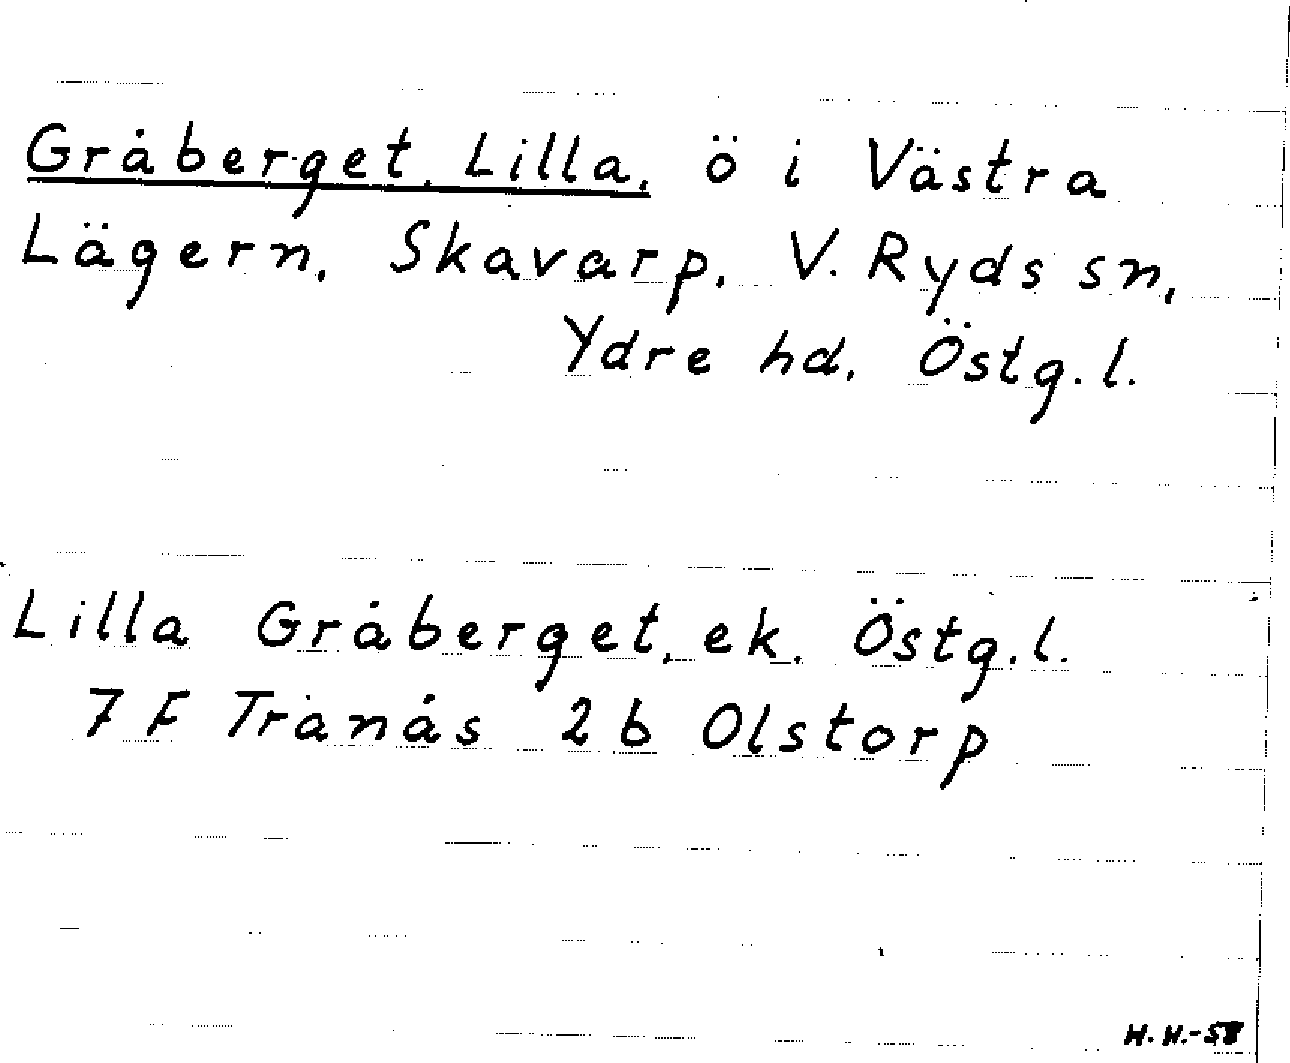 Gråberget, Lilla, ö i Västra
Lägern, Skavarp, V. Ryds sn,
Ydre hd, Östg.l.
Lilla Gråberget, ek. Östg.l.
7 F Tranås 2 b Olstorp
H.H.-58